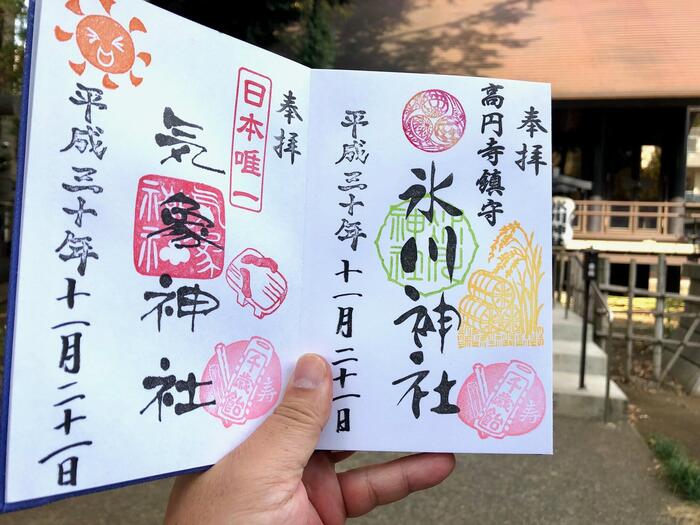 奉拝
高円寺鎮守
氷川神社
平成三十年十一月二十一日
千歳飴
寿
奉拝
日本唯一
気象神社
平成三十年十一月二十一日
千歳飴
寿